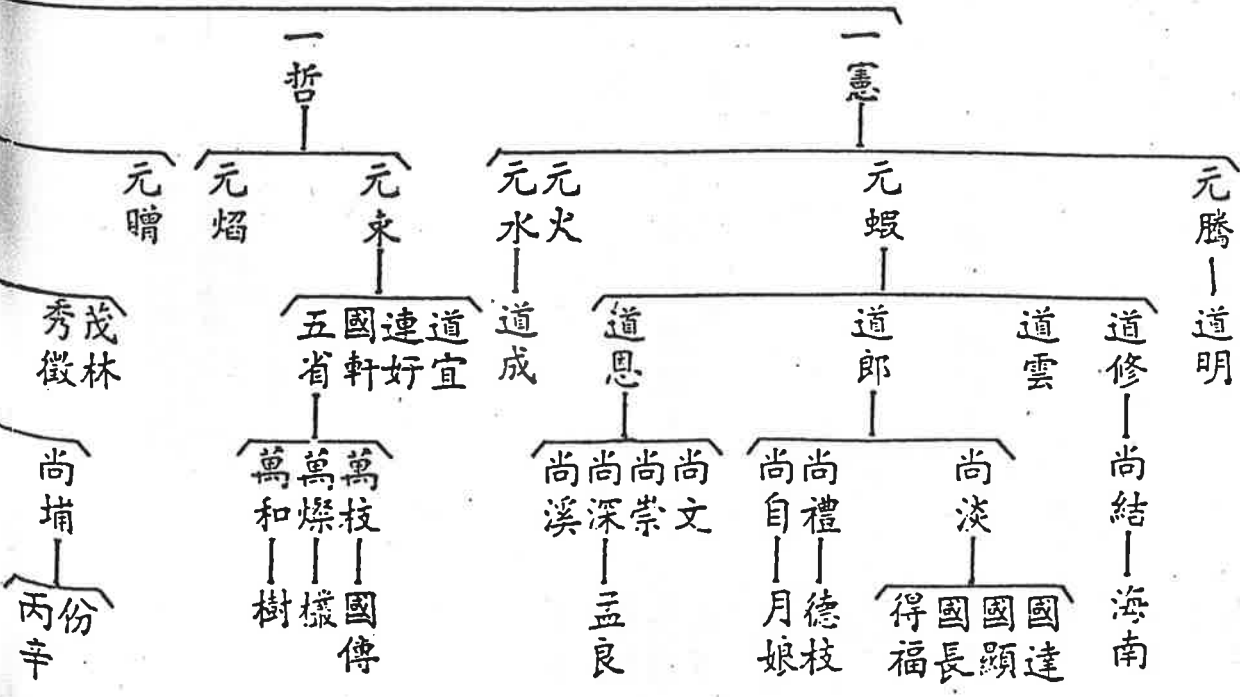 一憲
一哲
元騰
元蝦
元火
元水
元
元焰
元
道明
道修
道雲
道郎
道恩
道成
道宜
連
國軒
五省
茂林
秀徵
尚結
尚淡
尚禮
尚自
尚文
尚崇
尚深
尚溪
萬枝
萬燦
萬和
尚埔
海南
國達
國顯
國長
得福
德枝
月娘
孟良
國傳
樹
份
丙辛